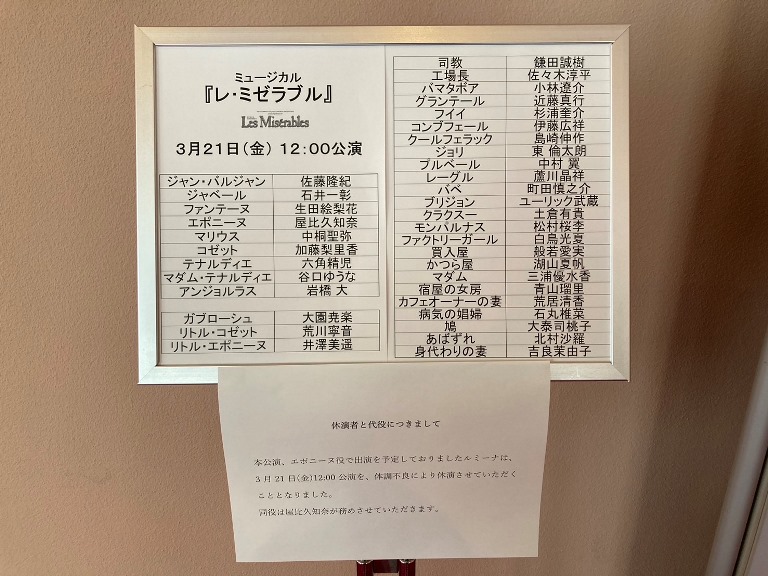 ミュージカル
『レ・ミゼラブル』
Les Misérables
3月21日(金) 12:00公演
ジャン・バルジャン 佐藤隆紀
ジャベール 石井一彰
ファンテーヌ 生田絵梨花
エポニーヌ 屋比久知奈
マリウス 中桐聖弥
コゼット 加藤梨里香
テナルディエ 六角精児
マダム・テナルディエ 谷口ゆうな
アンジョルラス 岩橋 大
ガブローシュ 大園尭楽
リトル・コゼット 荒川寧音
リトル・エポニーヌ 井澤美遥
司教 鎌田誠樹
工場長 佐々木淳平
バマタボア 小林遼介
グランテール 近藤真行
フイイ 杉浦奎介
コンブフェール 伊藤広祥
クールフェラック 島崎伸作
ジョリ 東 倫太朗
プルベール 中村 翼
レーグル 蘆川晶祥
バベ 町田慎之介
ブリジョン ユーリック武蔵
クラクスー 土倉有貴
モンパルナス 松村桜李
ファクトリーガール 白鳥光夏
買入屋 般若愛実
かつら屋 湖山夏帆
マダム 三浦優水香
宿屋の女房 青山瑠里
カフェオーナーの妻 荒居清香
病気の娼婦 石丸椎菜
鳩 大泰司桃子
あばずれ 北村沙羅
身代わりの妻 吉良茉由子
休演者と代役につきまして
本公演、エポニーヌ役で出演を予定しておりましたルミーナは、
3月21日(金)12:00公演を、体調不良により休演させていただく
こととなりました。
同役は屋比久知奈が務めさせていただきます。